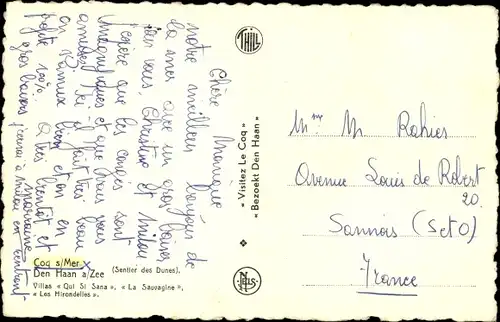 Chère Monique
notre meilleur bonjour de
la mer avec un gros baiser
pour vous, Christine et Milou
j'espère que les congés sont
magnifiques et que vous vous
amusez. Ici il fait très beau
on s'amuse bien et on en
profite 100%. A bientôt et
gros baisers
Coq s/Mer X
Den Haan a/Zee (Sentier des Dunes).
Villas « Qui Si Sana », « La Sauvagine »,
« Les Hirondelles ».
THILL
« Visitez Le Coq »
« Bezoekt Den Haan »
NELS
Mr M. Rahies
Avenue Louis de Robert
20.
Sannois (S et O)
France